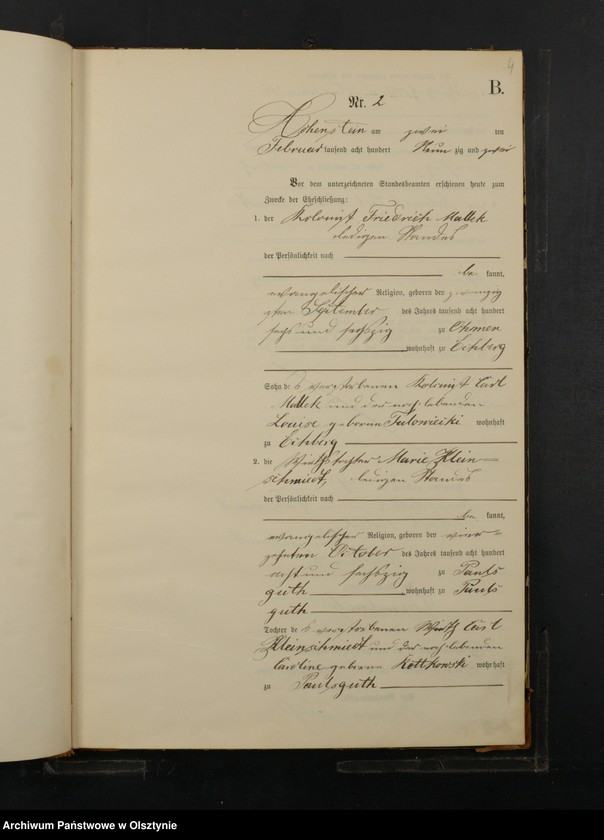 4
B.
Nr. 2
Hohenstein am zwei ten
Februar tausend acht hundert Neun zig und zwei
Vor dem unterzeichneten Standesbeamten erschienen heute zum
Zwecke der Eheschließung:
1. der Kolonist Friedrich Mallek
ledigen Standes
der Persönlichkeit nach
be kannt,
evangelischer Religion, geboren den zwanzig
sten September des Jahres tausend acht hundert
sechs und sechszig zu Thymau
wohnhaft zu Eichberg
Sohn des verstorbenen Kolonist Carl
Mallek und der noch lebenden
Louise geborene wohnhaft
zu Eichberg
2. die Wirthstochter Marie Klein
schmidt, ledigen Standes
der Persönlichkeit nach
be kannt,
evangelischer Religion, geboren den vier
zehnten October des Jahres tausend acht hundert
acht und sechszig zu Pauls
guth wohnhaft zu Pauls
guth
Tochter des verstorbenen Wirth Carl
Kleinschmidt und der noch lebenden
Caroline geborene Kottkowski wohnhaft
zu Paulsguth
Archiwum Państwowe w Olsztynie